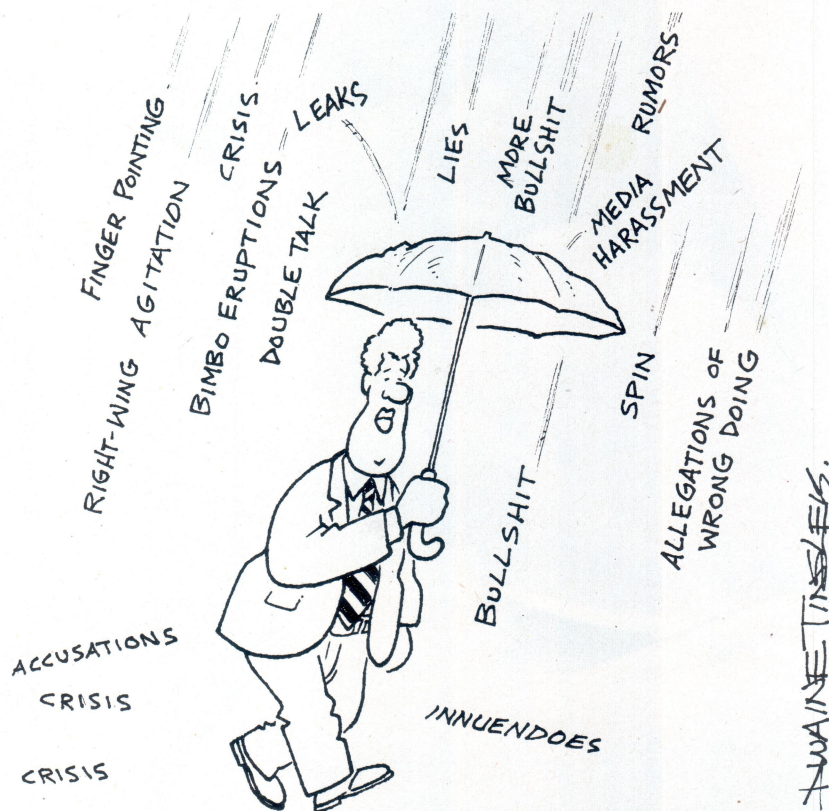 FINGER POINTING
RIGHT-WING AGITATION
CRISIS
BIMBO ERUPTIONS
DOUBLE TALK
LEAKS
LIES
MORE
BULLSHIT
RUMORS
MEDIA
HARASSMENT
SPIN
ALLEGATIONS OF
WRONG DOING
BULLSHIT
ACCUSATIONS
CRISIS
CRISIS
INNUENDOES
DWAINE TINSLEY.